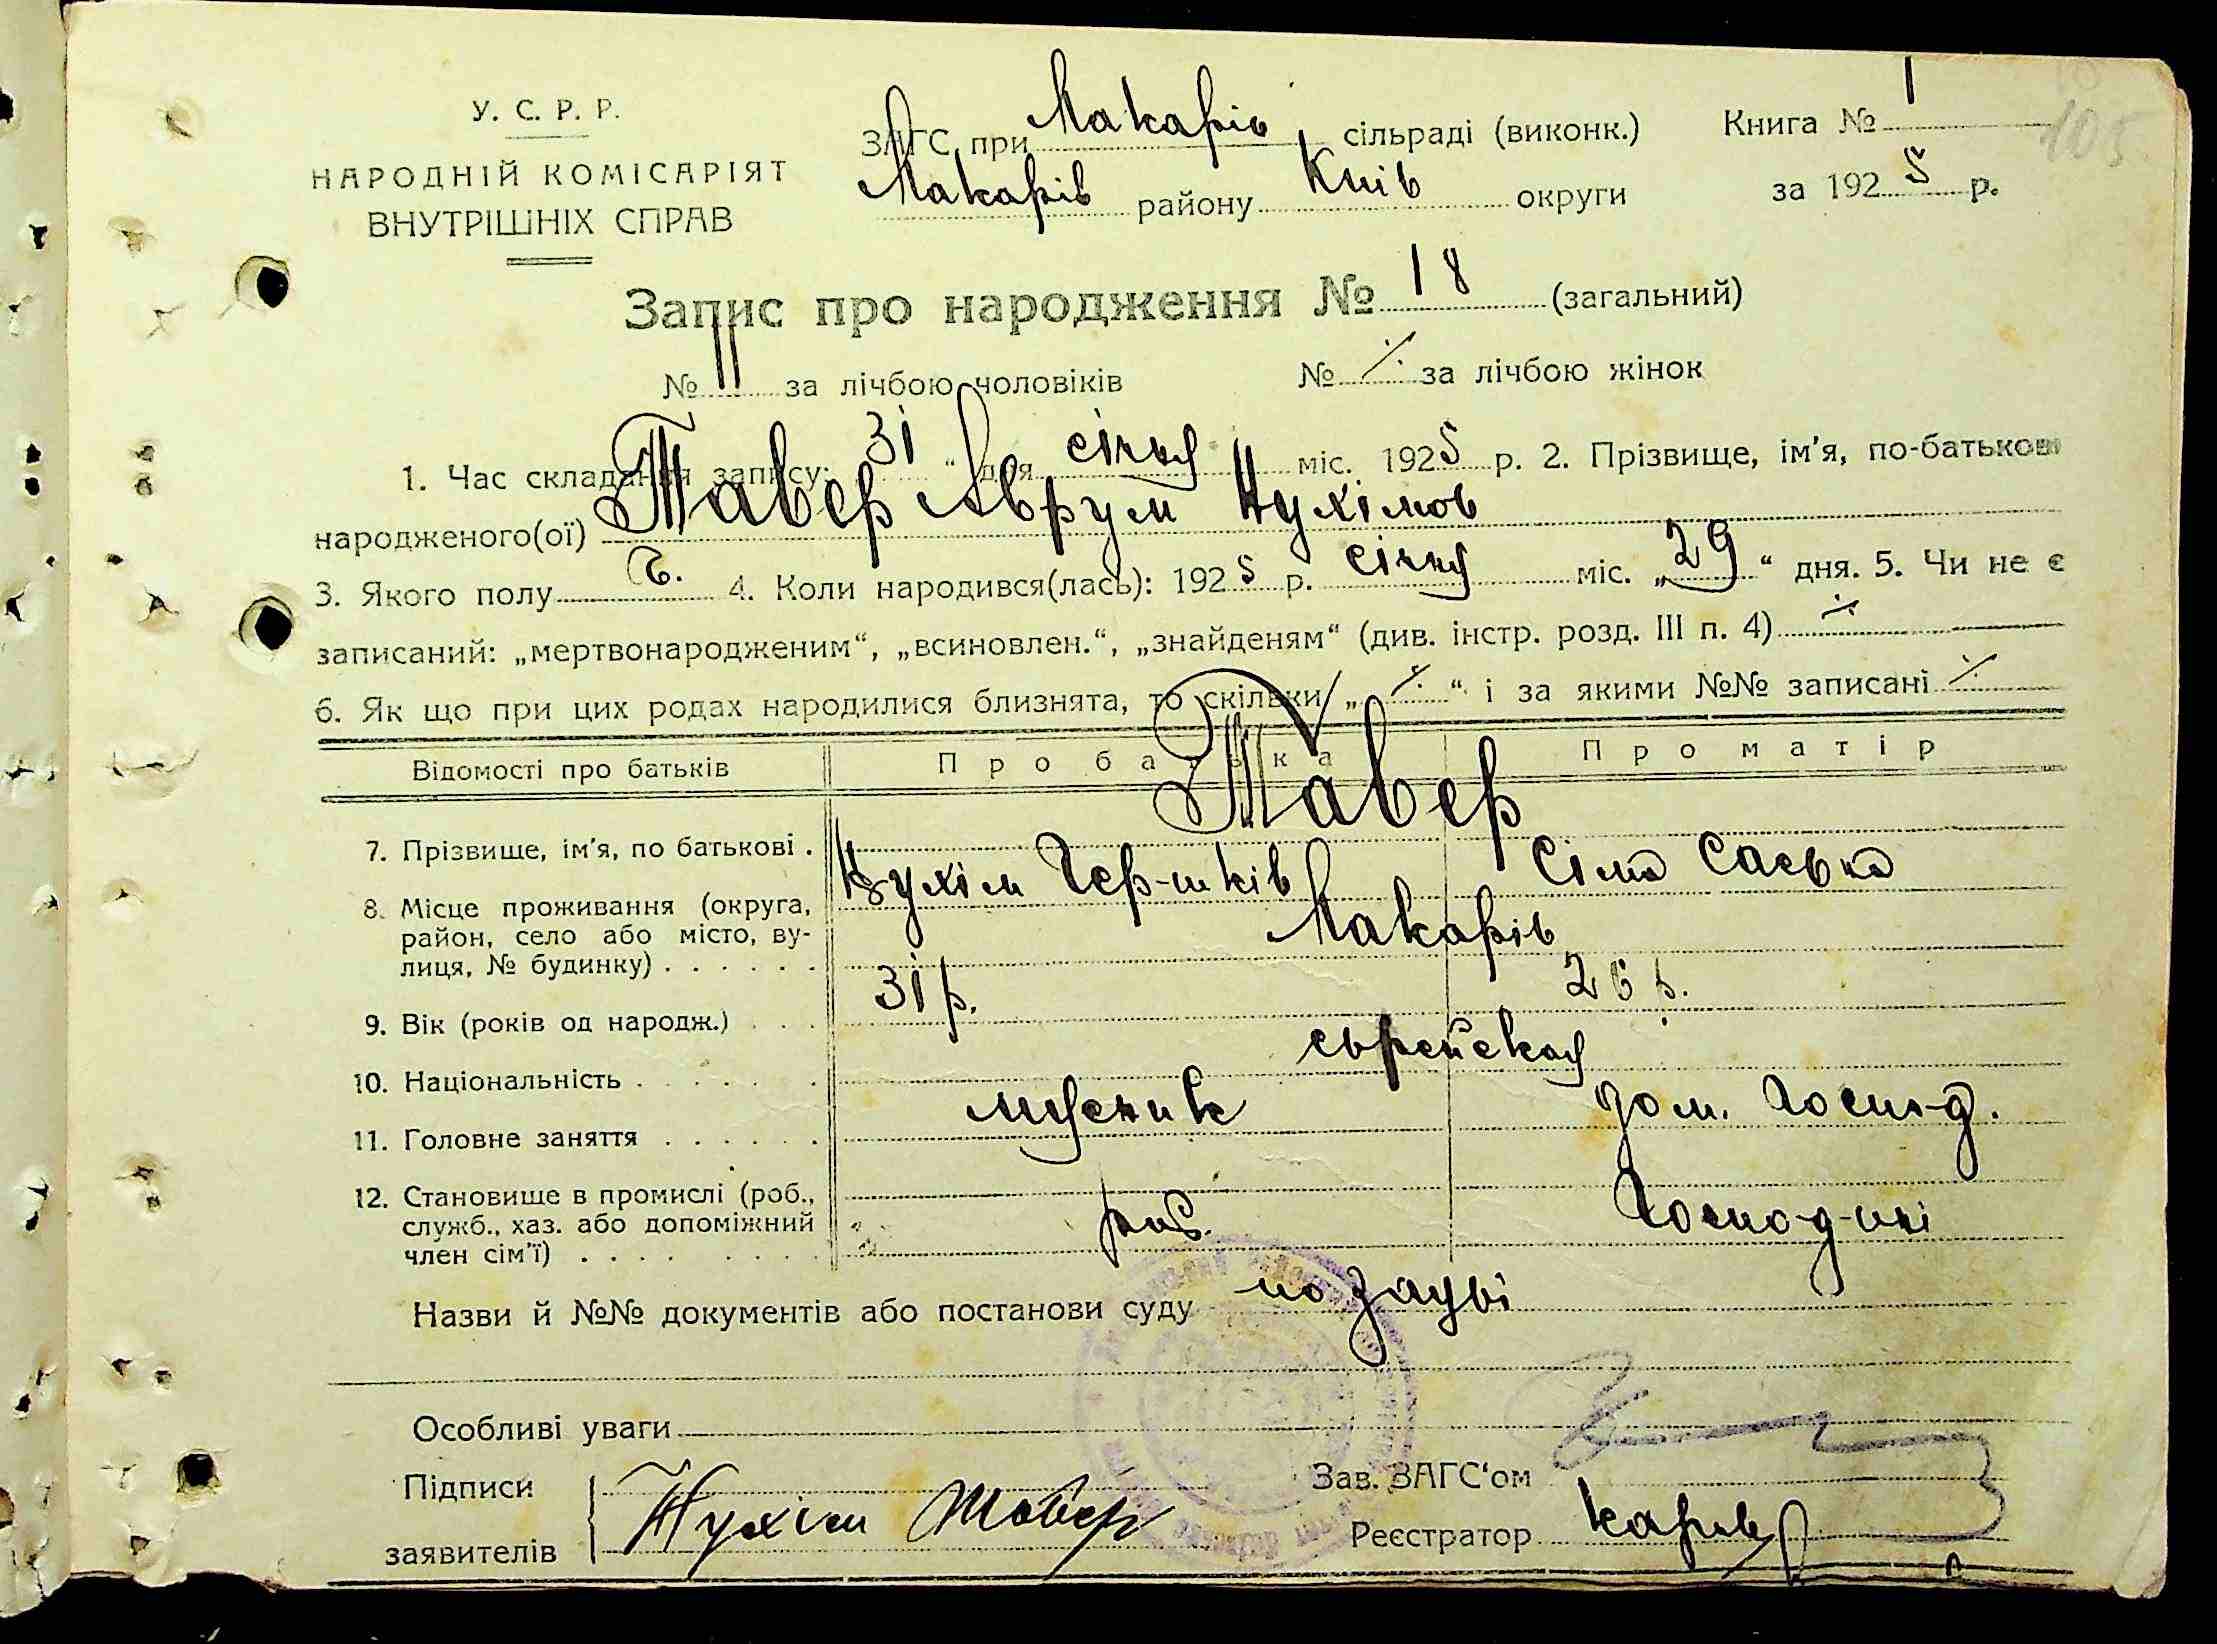 У. С. Р. Р.
НАРОДНІЙ КОМІСАРІЯТ
ВНУТРІШНІХ СПРАВ
ЗАГС при Макарів сільраді (виконк.) Книга № 1
105
Макарів району Київ округи за 1925 р.
Запис про народження № 18 (загальний)
№ 11 за лічбою чоловіків № ⁒ за лічбою жінок
1. Час складання запису: 31 " дня січня міс. 1925 р. 2. Прізвище, ім'я, по-батькові
народженого(ої) Тавер Аврум Нухімов
3. Якого полу ч. 4. Коли народився(лась): 1925 р. січня міс. „29“ дня. 5. Чи не є
записаний: „мертвонародженим“, „всиновлен.“, „знайденям“ (див. інстр. розд. III п. 4) ⁒
6. Як що при цих родах народилися близнята, то скільки „⁒“ і за якими №№ записані ⁒
Відомості про батьків Про батька Про матір
Тавер
7. Прізвище, ім'я, по батькові . Нухім Гер-шків Сіма
8. Місце проживання (округа,
район, село або місто, ву-
лиця, № будинку) . . . . . . Макарів
9. Вік (років од народж.) . . . 31 р. 26 р.
10. Національність . . . . . . . еврейская
11. Головне заняття . . . . . . дом. Госпо-д.
12. Становище в промислі (роб.,
служб., хаз. або допоміжний
член сім'ї) . . . . . . . . . роб. Госпо-д-ині
Назви й №№ документів або постанови суду по заяві
Особливі уваги
Підписи
заявителів Нухім Тавер
Зав. ЗАГС'ом
Реєстратор